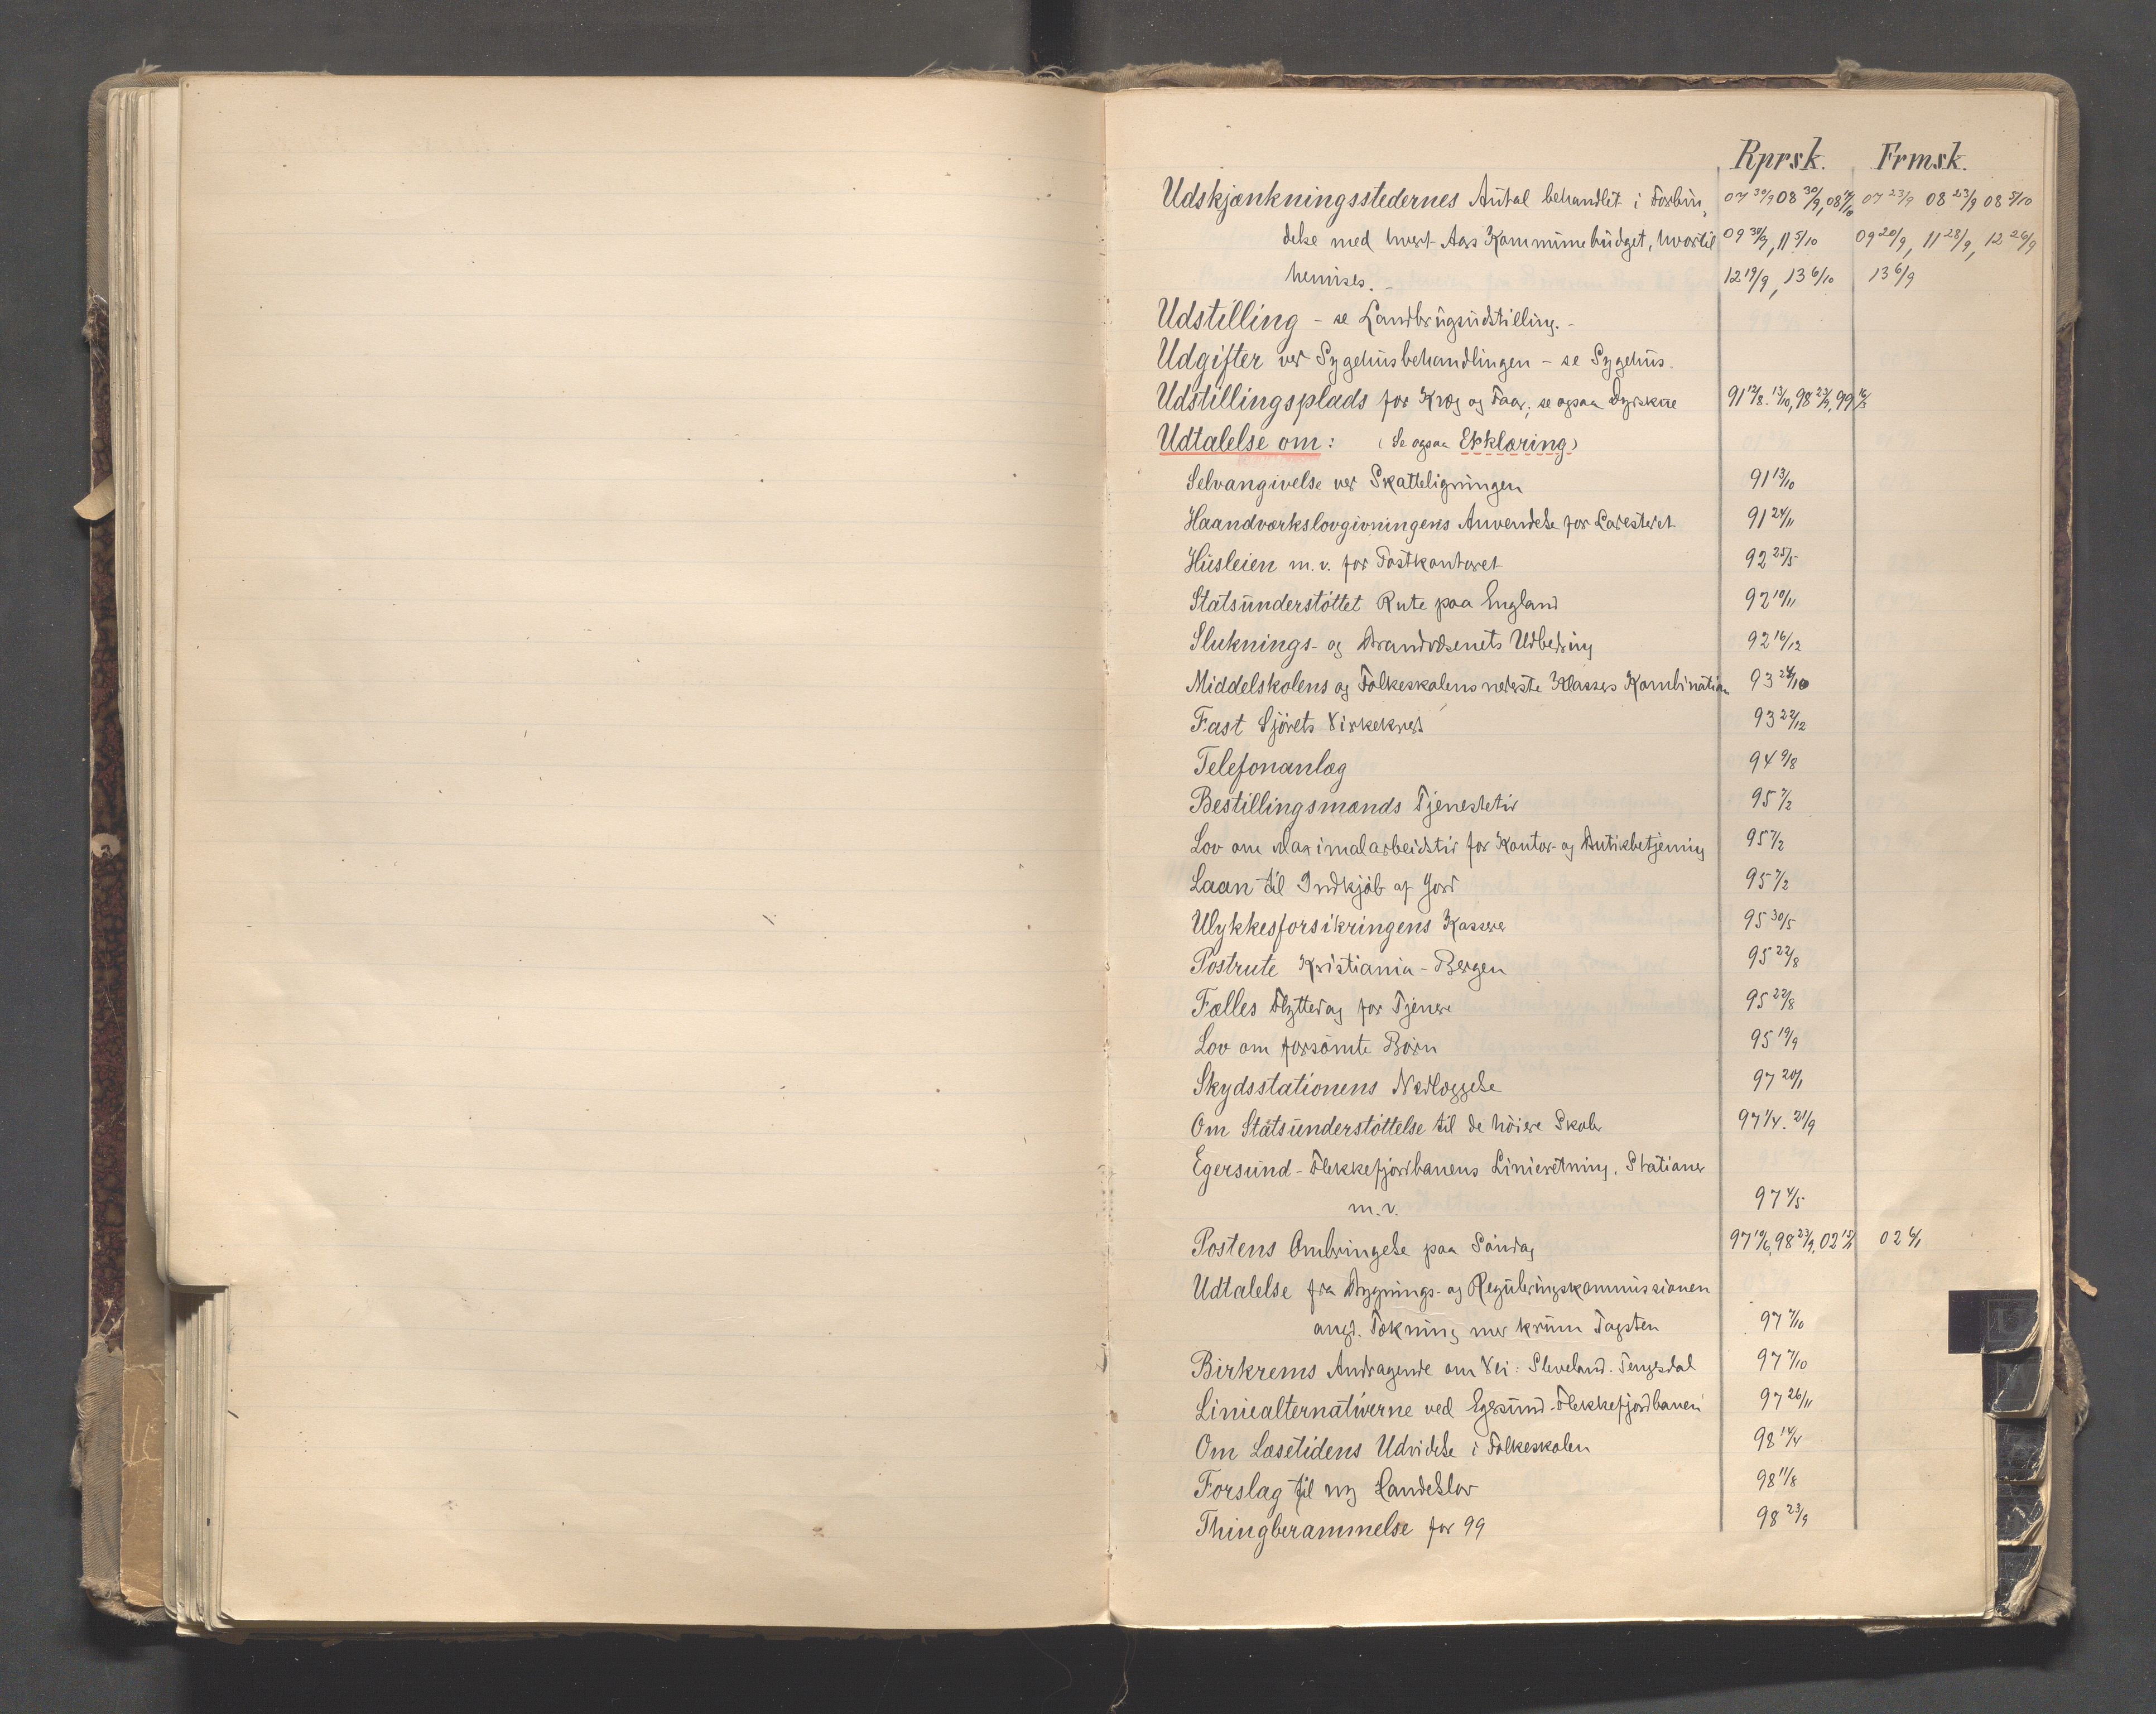 Rprsk. Frmsk.
Udskjænkningsstedernes Antal behandlet i Forbin- 07 30/9 08 30/9, 08 14/10 07 23/9 08 23/9 08 5/10
delse med hvert Aars Kommunebudget, hvortil 09 30/9, 11 5/10 09 20/9, 11 28/9, 12 26/9
henvises. - 12 19/9, 13 6/10 13 6/9
Udstilling - se Landbrugsudstilling. -
Udgifter ved Sygehusbehandlingen - se Sygehus.
Udstillingsplads for Kvæg og Faar; se ogsaa Dyrskue 91 12/8. 13/10, 98 23/9, 99
Udtalelse om: (Se ogsaa Erklæring)
Selvangivelse ved Skatteligningen 91 13/10
Haandværkslovgivningens Anvendelse for Ladestedet 91 24/11
Husleien m. v. for Postkontoret 92 25/5
Statsunderstøttet Rute paa England 92 10/11
Sluknings- og Brandvæsenets Udbedring 92 16/12
Middelskolens og Folkeskolens nederste Klassers Kombination 93 24/10
Fast Sjørets Virkekreds 93 22/12
Telefonanlæg 94 9/8
Bestillingsmænds Tjenestetid 95 7/2
Lov om Maximalarbeidstid for Kontor- og Butikbetjening 95 7/2
Laan til Indkjøb af Jord 95 7/2
Ulykkesforsikringens Kasserer 95 30/5
Postrute Kristiania - Bergen 95 22/8
Fælles Flyttedag for Tjenere 95 22/8
Lov om forsømte Børn 95 19/9
Skydsstationens Nedlæggelse 97 20/1
Om Statsunderstøttelse til de høiere Skoler 97 1/4. 21/9
Egersund - Flekkefjordbanens Linieretning, Stationer
m. v. 97 4/5
Postens Ombringelse paa Søndag 97 10/6, 98 23/9, 02 15/1 02 6/1
Udtalelse fra Bygnings- og Reguleringskommissionen
angd. Tækning med krum Tagsten 97 7/10
Birkrems Andragende om Vei: Sleveland - Tengsdal 97 7/10
Liniealternativerne ved Egersund - Flekkefjordbanen 97 26/11
Om Læsetidens Udvidelse i Folkeskolen 98 14/4
Forslag til ny Handelslov 98 11/8
Thingberammelse for 99 98 23/9